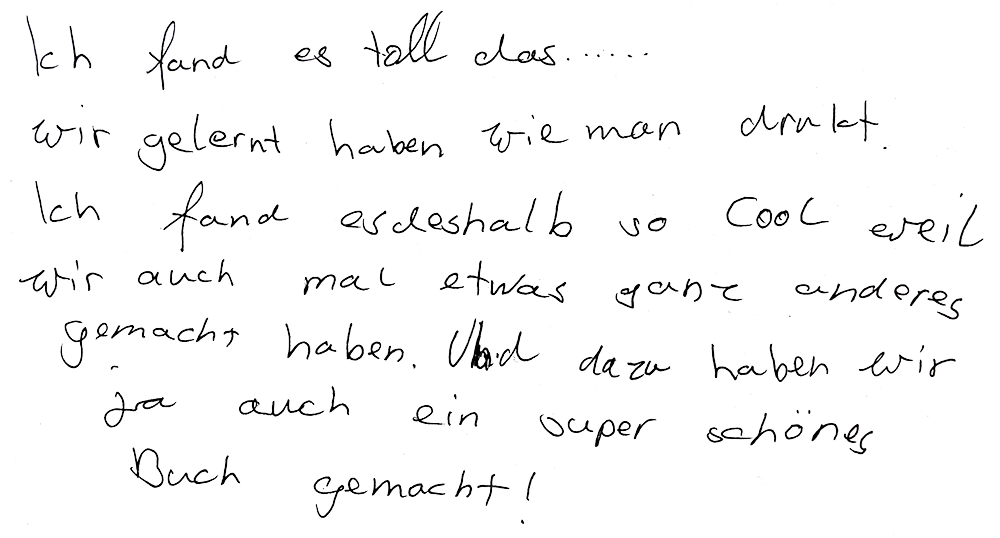 Ich fand es toll das......
wir gelernt haben wie man drukt.
Ich fand esdeshalb so Cool weil
wir auch mal etwas ganz anderes
gemacht haben. Und dazu haben wir
ja auch ein super schönes
Buch gemacht!